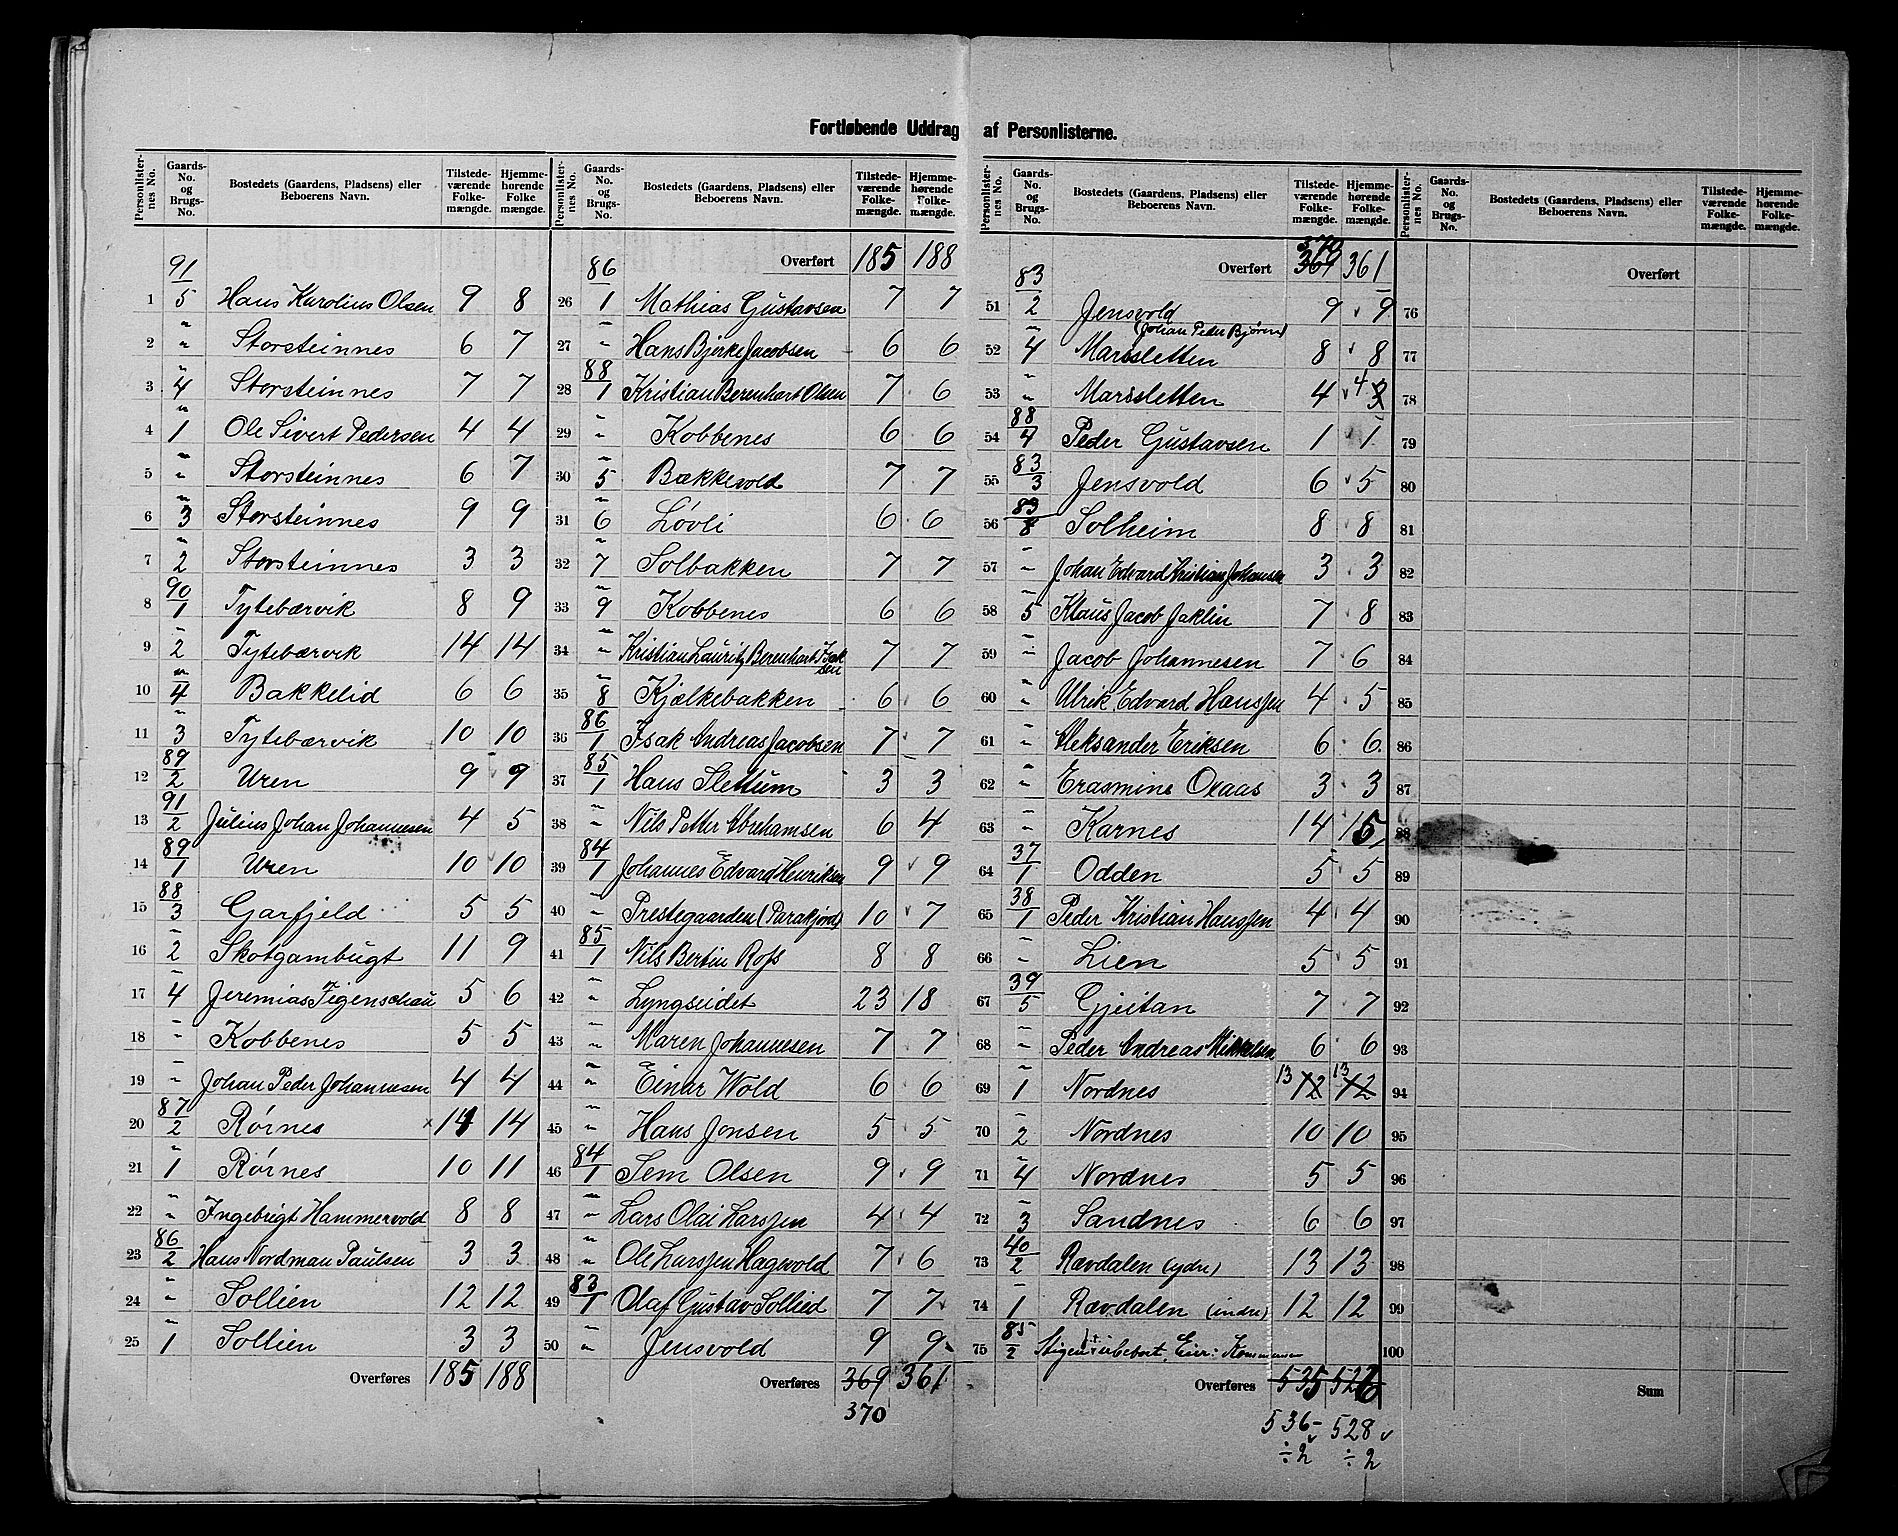 Fortløbende Uddrag af Personlisterne.
Personlister-nes No. | Gaards-No. og Brugs-No. | Bostedets (Gaardens, Pladsens) eller Beboerens Navn. | Tilstede-værende Folke-mængde. | Hjemme-hørende Folke mængde.
1 | 91/5 | Hans Karolius Olsen | 9 | 8
2 | " " | Storsteinnes | 6 | 7
3 | "/4 | Storsteinnes | 7 | 7
4 | "/1 | Ole Sivert Pedersen | 4 | 4
5 | " " | Storsteinnes | 6 | 7
6 | "/3 | Storsteinnes | 9 | 9
7 | "/2 | Storsteinnes | 3 | 3
8 | 90/1 | Tytebærvik | 8 | 9
9 | "/2 | Tytebærvik | 14 | 14
10 | "/4 | Bakkelid | 6 | 6
11 | "/3 | Tytebærvik | 10 | 10
12 | 89/2 | Uren | 9 | 9
13 | 91/2 | Julius Johan Johannesen | 4 | 5
14 | 89/1 | Uren | 10 | 10
15 | 88/3 | Garfjeld | 5 | 5
16 | "/2 | Skotgambugt | 11 | 9
17 | "/4 | Jeremias Figenschau | 5 | 6
18 | " | Kobbenes | 5 | 5
19 | " | Johan Peder Johannesen | 4 | 4
20 | 87/2 | Rørnes | × 14 | 14
21 | "/1 | Rørnes | 10 | 11
22 | " " | Ingebrigt Hammervold | 8 | 8
23 | 86/2 | Hans Nordman Paulsen | 3 | 3
24 | " " | Sollien | 12 | 12
25 | 1 | Sollien | 3 | 3
Overføres | 185 | 188
Personlister-nes No. | Gaards-No. og Brugs-No. | Bostedets (Gaardens, Pladsens) eller Beboerens Navn. | Tilstede-værende Folke-mængde. | Hjemme-hørende Folke-mængde.
Overført | 185 | 188
26 | 86/1 | Mathias Gustavsen | 7 | 7
27 | " | Hans Bjerke Jacobsen | 6 | 6
28 | 88/1 | Kristian Berenhart Olsen | 7 | 6
29 | " " | Kobbenes | 6 | 6
30 | "/5 | Bækkevold | 7 | 7
31 | "/6 | Løvli | 6 | 6
32 | "/7 | Solbakken | 7 | 7
33 | "/9 | Kobbenes | 6 | 6
34 | " " | Kristian Lauritz Berenhart Isaksen | 7 | 7
35 | "/8 | Kjælkebakken | 6 | 6
36 | 86/1 | Isak Andreas Jacobsen | 7 | 7
37 | 85/1 | Hans Slettum | 3 | 3
38 | " " | Nils Petter Abrahamsen | 6 | 4
39 | 84/1 | Johannes Edvard Henriksen | 9 | 9
40 | " | Prestegaarden (Parakjord) | 10 | 7
41 | 85/1 | Nils Bertin Rofs | 8 | 8
42 | " " | Lyngseidet | 23 | 18
43 | " " | Maren Johannesen | 7 | 7
44 | " " | Einar Wold | 6 | 6
45 | " " | Hans Jonsen | 5 | 5
46 | 84/1 | Sem Olsen | 9 | 9
47 | " " | Lars Olai Larssen | 4 | 4
48 | " " | Ole Larssen Hagevold | 7 | 6
49 | 83/1 | Olaf Gustav Sollied | 7 | 7
50 | " " | Jensvold | 9 | 9
Overføres | 369 | 361
370
Personlister-nes No. | Gaards-No. og Brugs-No. | Bostedets (Gaardens, Pladsens) eller Beboerens Navn. | Tilstede-værende Folke-mængde. | Hjemme-hørende Folke-mængde.
370
Overført | 369 | 361
51 | 83/2 | Jensvold (Johan Peder Bjørn) | 9 | 9
52 | "/4 | Marisletten | 8 | 8
53 | " " | Marisletten | 4 | 4 3
54 | 88/4 | Peder Gustavsen | 1 | 1
55 | 83/3 | Jensvold | 6 | 5
56 | 83/8 | Solheim | 8 | 8
57 | " " | Johan Edvard Kristian Johansen | 3 | 3
58 | 5 | Klaus Jacob Jaklin | 7 | 8
59 | " | Jacob Johannesen | 7 | 6
60 | " " | Ulrik Edvard Hanssen | 4 | 5
61 | " " | Aleksander Eriksen | 6 | 6
62 | " " | Erasmine Oxaas | 3 | 3
63 | " " | Karnes | 14 | 15
64 | 37/1 | Odden | 5 | 5
65 | 38/1 | Peder Kristian Hanssen | 4 | 4
66 | " " | Lien | 5 | 5
67 | 39/5 | Gjeitan | 7 | 7
68 | " " | Peder Andreas Mikkelsen | 6 | 6
69 | 1 | Nordnes | 13 12 | 13 12
70 | "/2 | Nordnes | 10 | 10
71 | "/4 | Nordnes | 5 | 5
72 | "/3 | Sandnes | 6 | 6
73 | 40/2 | Rævdalen (ydre) | 13 | 13
74 | "/1 | Rævdalen (indre) | 12 | 12
75 | 85/2 | Stigen ubebort, Eier: Kommunen
Overføres | 535 | 526
536 - | 528
÷ 2 | ÷ 2
Personlister-nes No. | Gaards-No. og Brugs-No. | Bostedets (Gaardens, Pladsens) eller Beboerens Navn. | Tilstede-værende Folke-mængde. | Hjemme-hørende Folke-mængde.
Overført
76
77
78
79
80
81
82
83
84
85
86
87
88
89
90
91
92
93
94
95
96
97
98
99
100
Sum